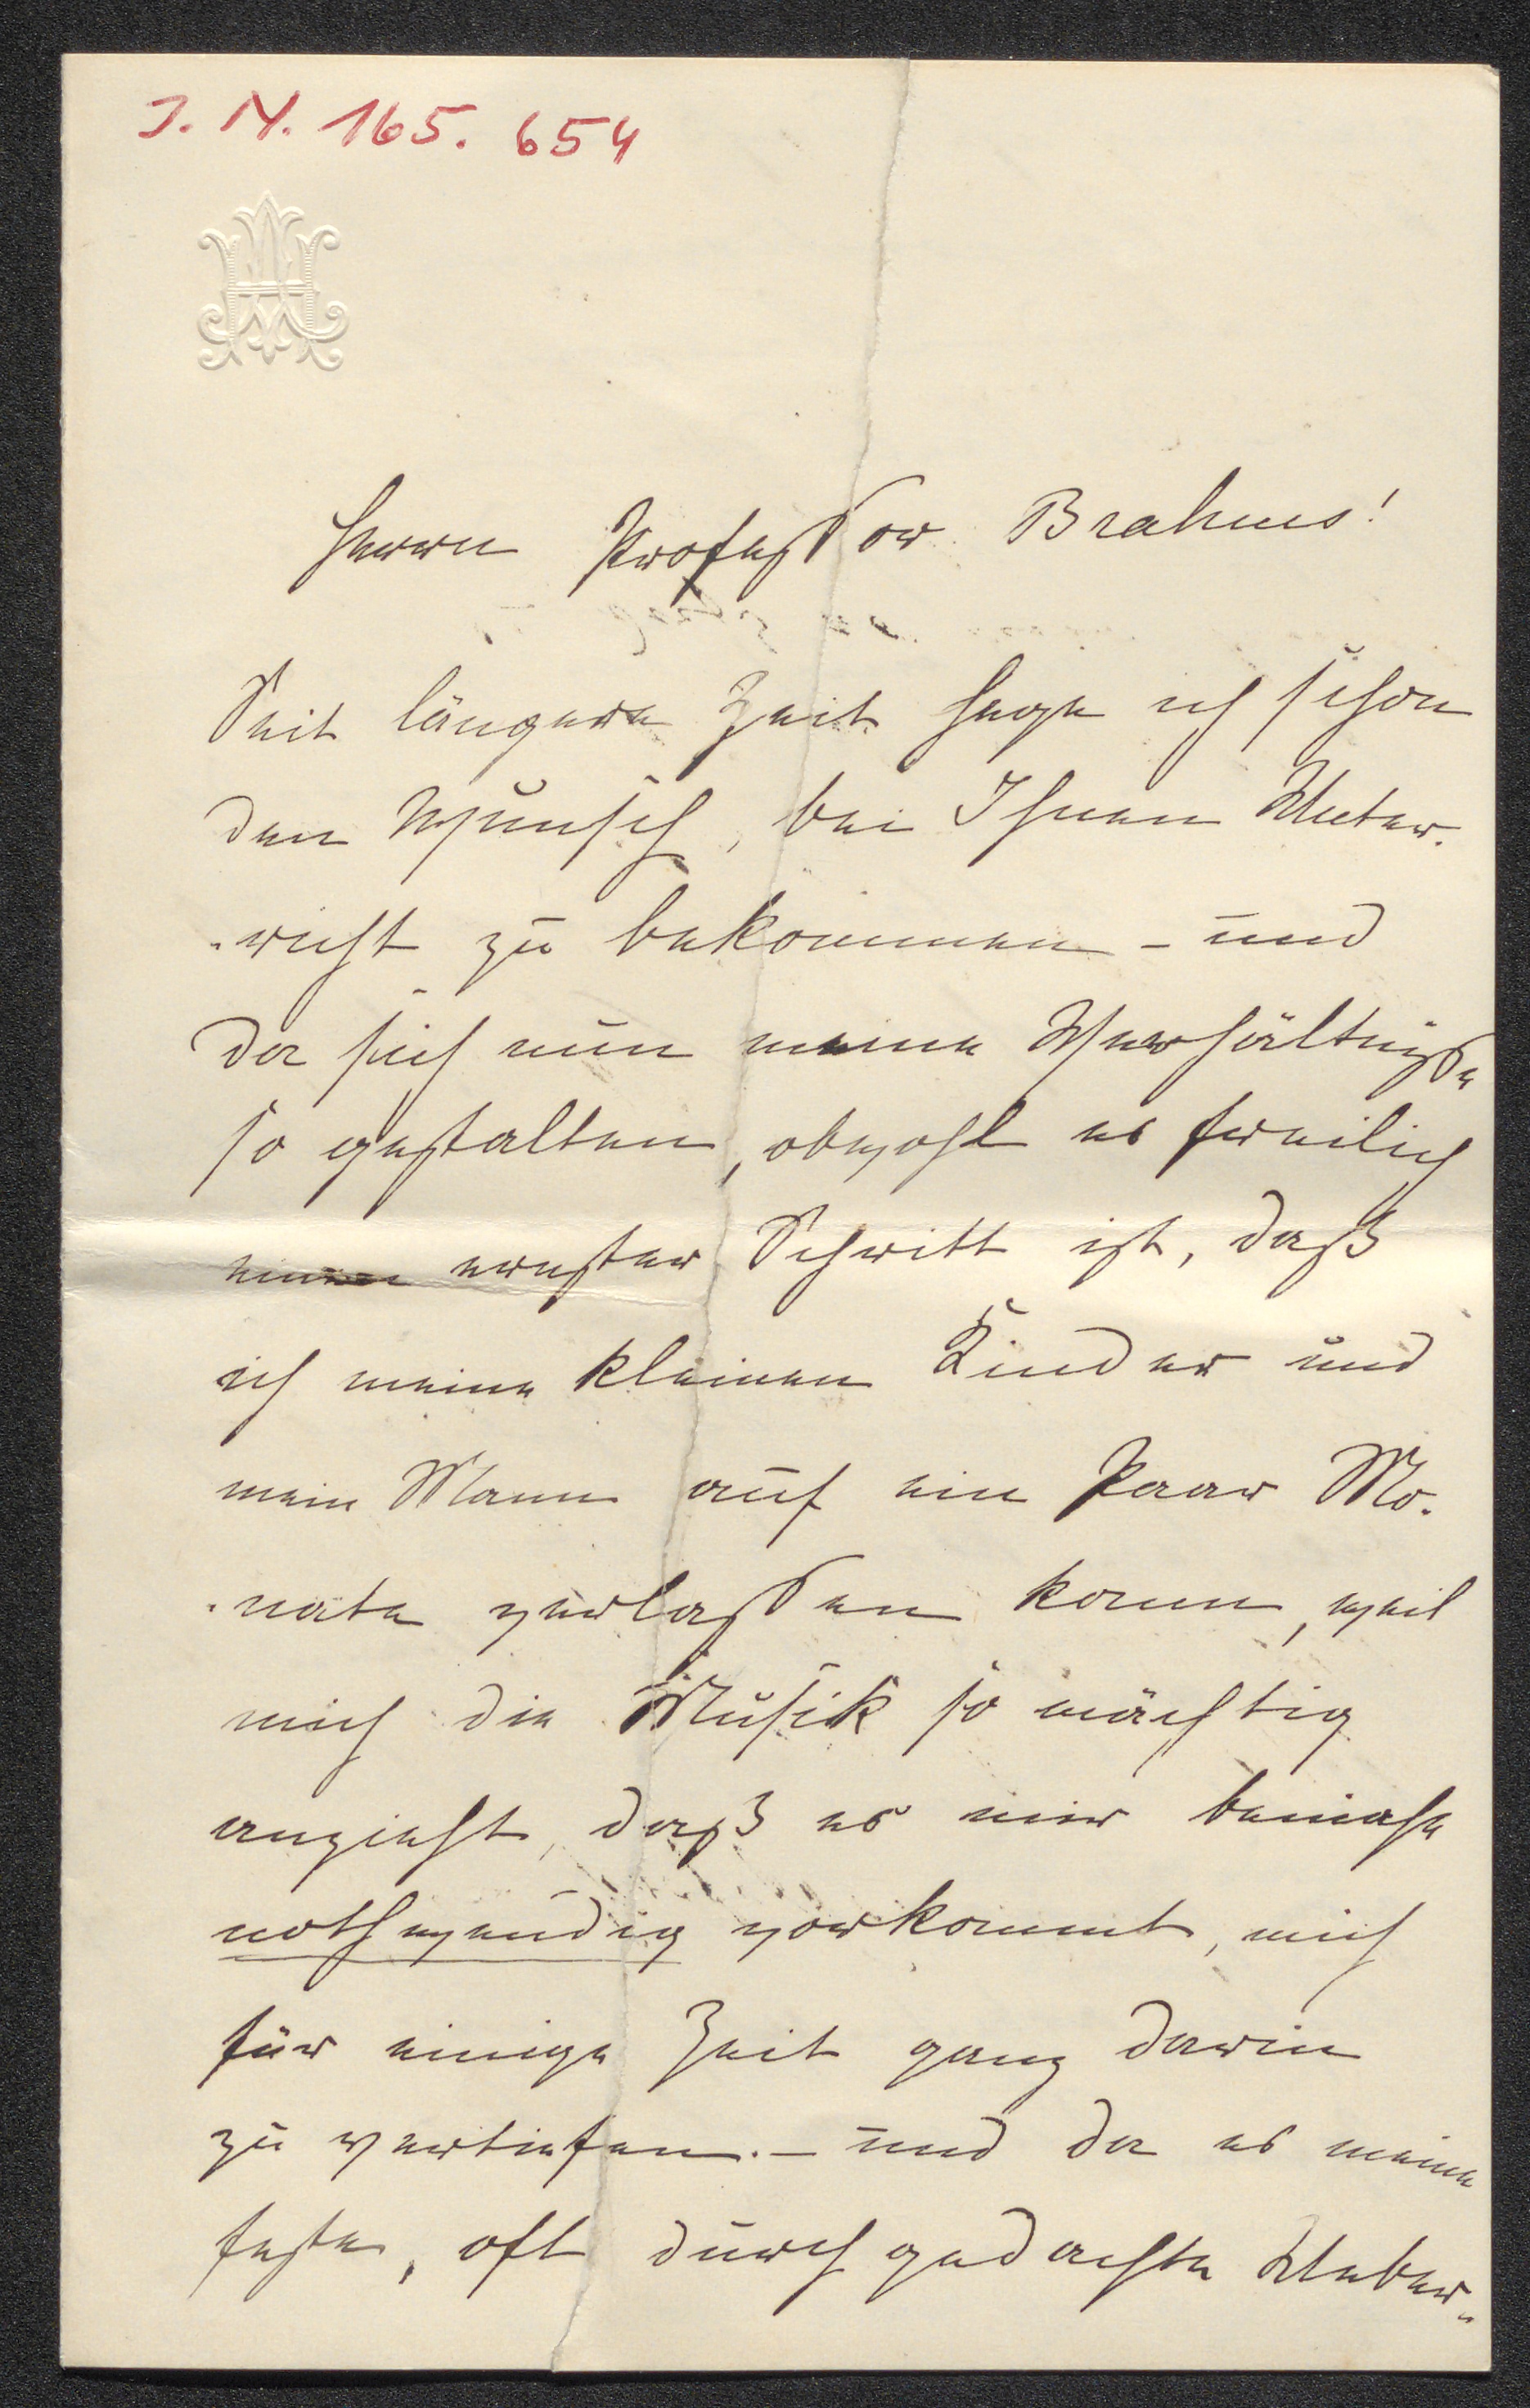 J. N. 165.654
Herrn Professor Brahms!
Seit längere Zeit hege ich schon
den Wunsch, bei Ihnen Unter-
-richt zu bekommen - und
da sich nun meine Verhältnisse
so gestalten, obwohl es freilich
ernster Schritt ist, daß
ich meine kleinen Kinder und
mein Mann auf ein Paar Mo-
-nate verlassen kann, weil
mich die Musik so mächtig
anzieht, daß es mir beinahe
nothwendig vorkommt, mich
für einige Zeit ganz darin
zu vertiefen. - und da es meine
feste, oft durchgedachte Ueber-